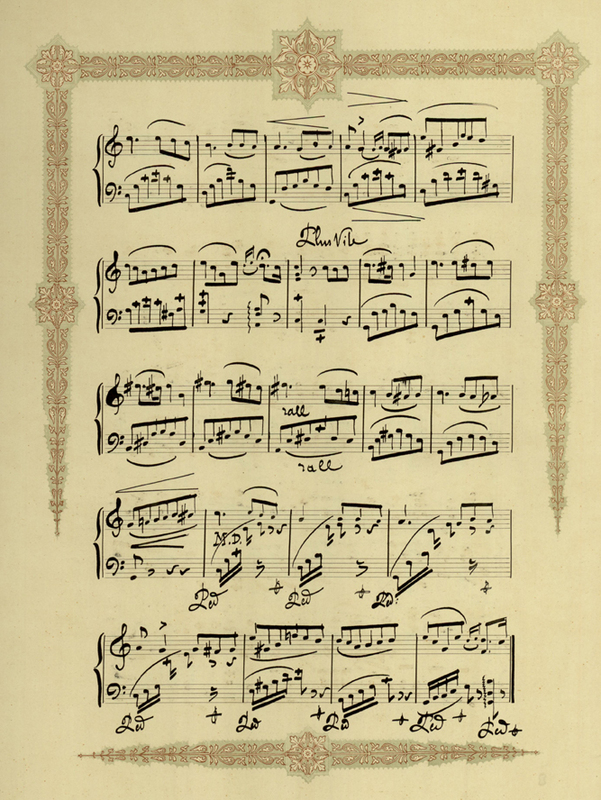 Plus Vite
rall
rall
M.D.
Ped
Ped
Ped:
Ped
Ped
Ped
Ped
Ped